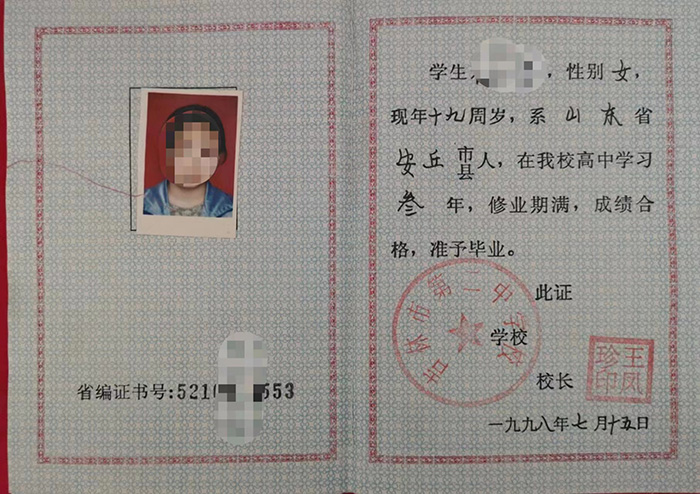 省编证书号:521 553
学生 ，性别女，
现年十九周岁，系山东省
安丘市县人，在我校高中学习
叁年，修业期满，成绩合
格，准予毕业。
此证
吉林市第一中学校
学校
校长
王凤珍印
一九九八年七月十五日